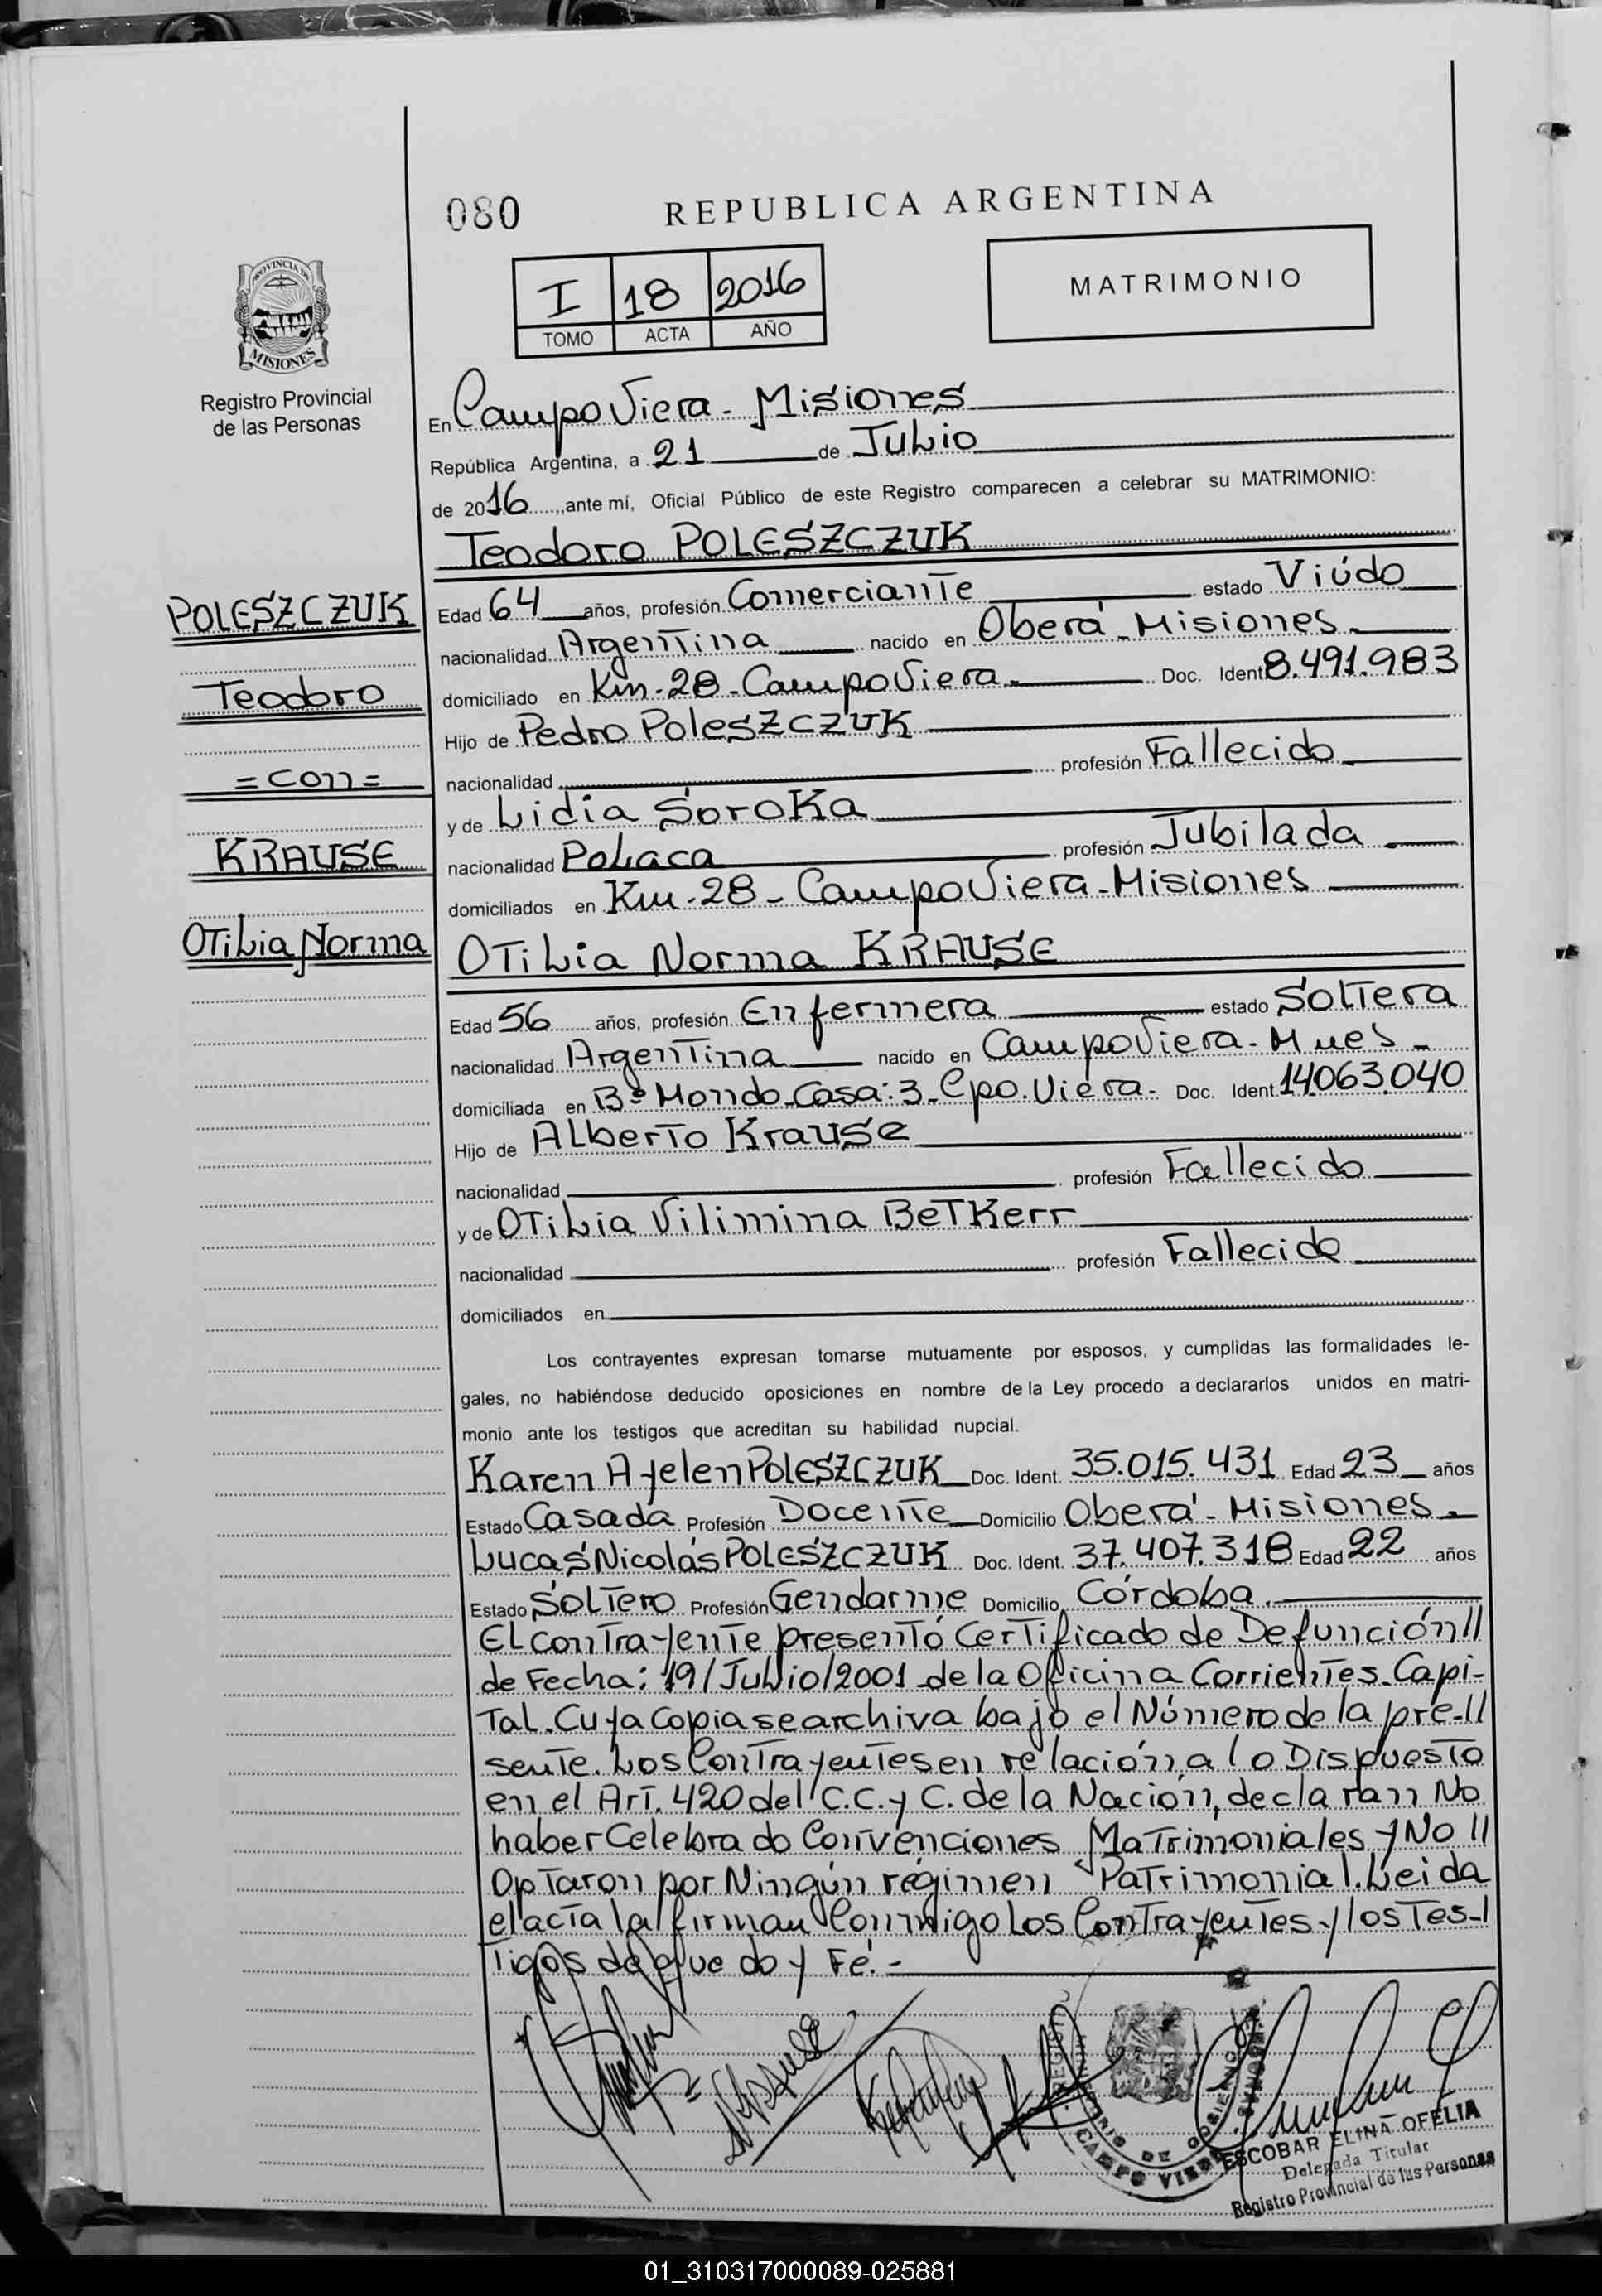 080
REPUBLICA ARGENTINA
PROVINCIA DE
MISIONES
Registro Provincial
de las Personas
I 18 2016
TOMO ACTA AÑO
MATRIMONIO
En Campo Viera - Misiones
República Argentina, a 21 de Julio
de 2016, ante mí, Oficial Público de este Registro comparecen a celebrar su MATRIMONIO:
Teodoro POLESZCZUK
POLESZCZUK
Teodoro
=con=
KRAUSE
Otilia Norma
Edad 64 años, profesión Comerciante estado Viúdo
nacionalidad Argentina nacido en Oberá - Misiones -
domiciliado en Km-28-Campo Viera - Doc. Ident 8.491.983
Hijo de Pedro Poleszczuk
nacionalidad profesión Fallecido
y de Lidia Soroka
nacionalidad Polaca profesión Jubilada
domiciliados en Km-28 - Campo Viera - Misiones
Otilia Norma KRAUSE
Edad 56 años, profesión Enfermera estado Soltera
nacionalidad Argentina nacido en Campo Viera - Mnes -
domiciliada en Bº Mondo-Casa:3-Cpo. Viera - Doc. Ident. 14.063.040
Hijo de Alberto Krause
nacionalidad profesión Fallecido
y de Otilia Vilimina Betkerr
nacionalidad profesión Fallecido
domiciliados en
Los contrayentes expresan tomarse mutuamente por esposos, y cumplidas las formalidades le-
gales, no habiéndose deducido oposiciones en nombre de la Ley procedo a declararlos unidos en matri-
monio ante los testigos que acreditan su habilidad nupcial.
Karen Ayelen POLESZCZUK Doc. Ident. 35.015.431 Edad 23 años
Estado Casada Profesión Docente Domicilio Oberá - Misiones -
Lucas Nicolás POLESZCZUK Doc. Ident. 37.407.318 Edad 22 años
Estado Soltero Profesión Gendarme Domicilio Córdoba.
El contrayente presentó Certificado de Defunción//
de Fecha: 19/Julio/2001 de la Oficina Corrientes - Capi-
tal. Cuya copia se archiva bajo el Número de la pre-//
sente. Los Contrayentes en relación a lo Dispuesto
en el Art. 420 del C.C. y C. de la Nación, declaran No
haber Celebrado Convenciones Matrimoniales y No //
Optaron por Ningún régimen Patrimonial. Leida
el acta la firman Conmigo los Contrayentes y los Tes-/
tigos de que doy Fé.-
ESCOBAR ELINA OFELIA
Delegada Titular
Registro Provincial de las Personas
CAMPO VIERA
01_310317000089-025881